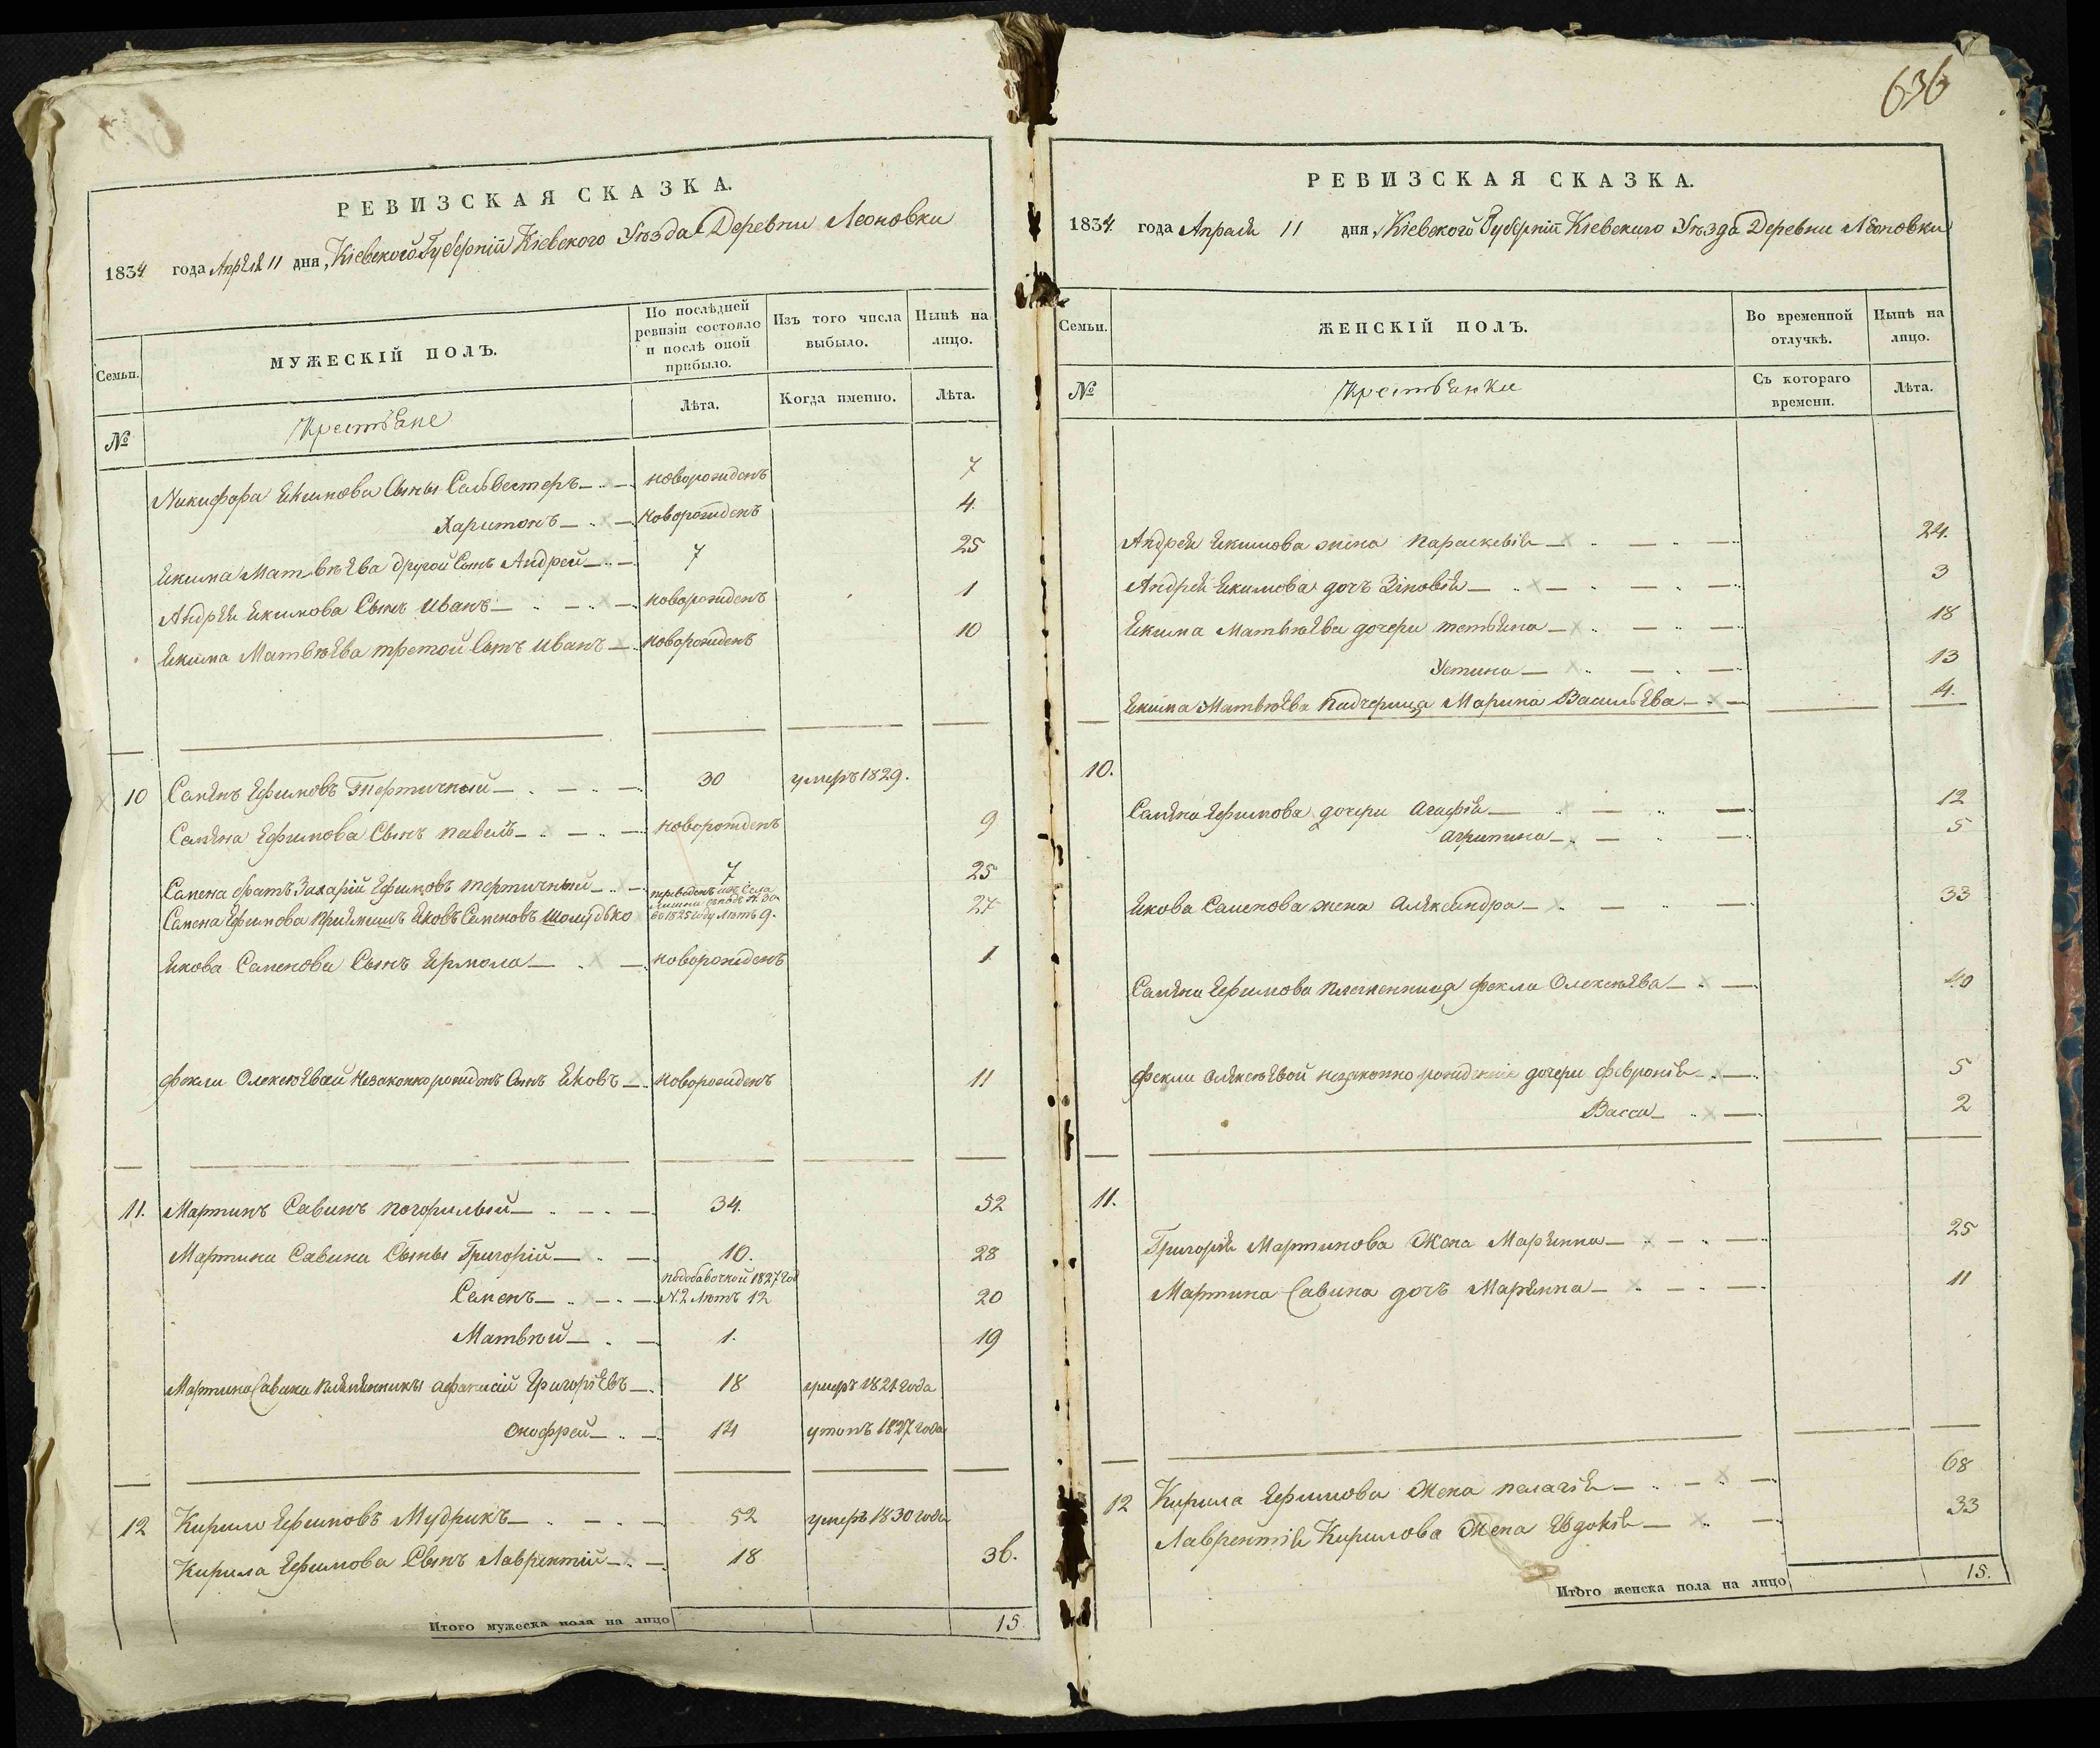 РЕВИЗСКАЯ СКАЗКА.
1834 года Апреля 11 дня, Кіевской Губерніи Кіевского Уезда Деревни Леоновки
Семьи.
МУЖЕСКІЙ ПОЛЪ.
По послѣдней ревизіи состояло и послѣ оной прибыло.
Изъ того числа выбыло.
Нынѣ на лицо.
№
Крестьяне
Лѣта.
Когда именно.
Лѣта.
Никифора Екимова Сыны Сельвестеръ новорожденъ 7
Харитонъ новорожденъ 4.
Екима Матвѣева другой Сынъ Андрей 7 25
Андрея Екимова Сынъ Иванъ новорожденъ 1
Екима Матвѣева третой Сынъ Иванъ новорожденъ 10
10 Семенъ Ефимовъ Тертичный 30 умеръ 1829.
Семена Ефимова Сынъ павелъ новорожденъ 9
Семена братъ Захарій Ефимовъ тертичный 7 25
Семена Ефимова приемышъ Яковъ Семеновъ Шолудько
во 1825 году Летъ 9. 27
Якова Семенова Сынъ Ермола новорожденъ 1
феклы Олексеевой Незаконнорожденъ Сынъ Яковъ новорожденъ 11
11. Мартинъ Савинъ погорилый 34. 52
Мартина Савина Сыны Григорій 10. 28
Семенъ
подобавочной 1827 год
N. 2 Летъ 12 20
Матвѣй 1. 19
Мартина Савина племянники афанасій Григорьевъ 18 умеръ 1821 года
Онофрей 14 утопъ 1827 года
12 Кирило Ефимовъ Мудрикъ 52 умеръ 1830 года
Кирила Ефимова Сынъ Лаврентій 18 36.
Итого мужеска пола на лицо 15.
636
РЕВИЗСКАЯ СКАЗКА.
1834 года Апреля 11 дня, Кіевской Губерніи Кіевского Уезда Деревни Леоновки
Семьи.
ЖЕНСКІЙ ПОЛЪ.
Во временной отлучкѣ.
Нынѣ на лицо.
№
Крестьянки
Съ котораго времени.
Лѣта.
Андрея Екимова жена параскевія 24.
Андрея Екимова дочь Зіновія 3
Екима Матвѣева дочери тетьяна 18
Устина 13
Екима Матвѣева падчерица Марина Васильева 4.
10.
Семена Ефимова дочери агафія 12
агрипина 5
Якова Семенова жена Александра 33
Семена Ефимова племенница фекла Олексеева 40
феклы Олексеевой незаконно рожденніе дочери февронія 5
Васса 2
11.
Григорія Мартинова Жена Маріянна 25
Мартина Савина дочь Маріянна 11
12 Кирила Ефимова Жена пелагія 68
Лаврентія Кирилова Жена Евдокія 33
Итого женска пола на лицо 15.